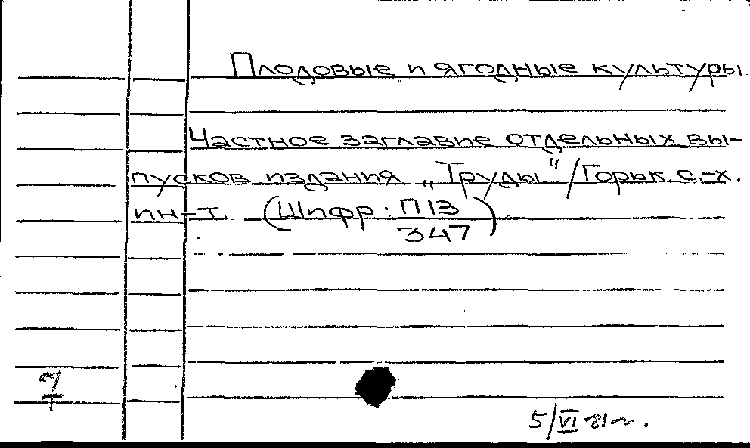 Плодовые и ягодные культуры.
Частное заглавие отдельных вы-
пусков издания „Труды"/Горьк. с.-х.
ин-т. (Шифр: П13
347)
5/VI-81г.